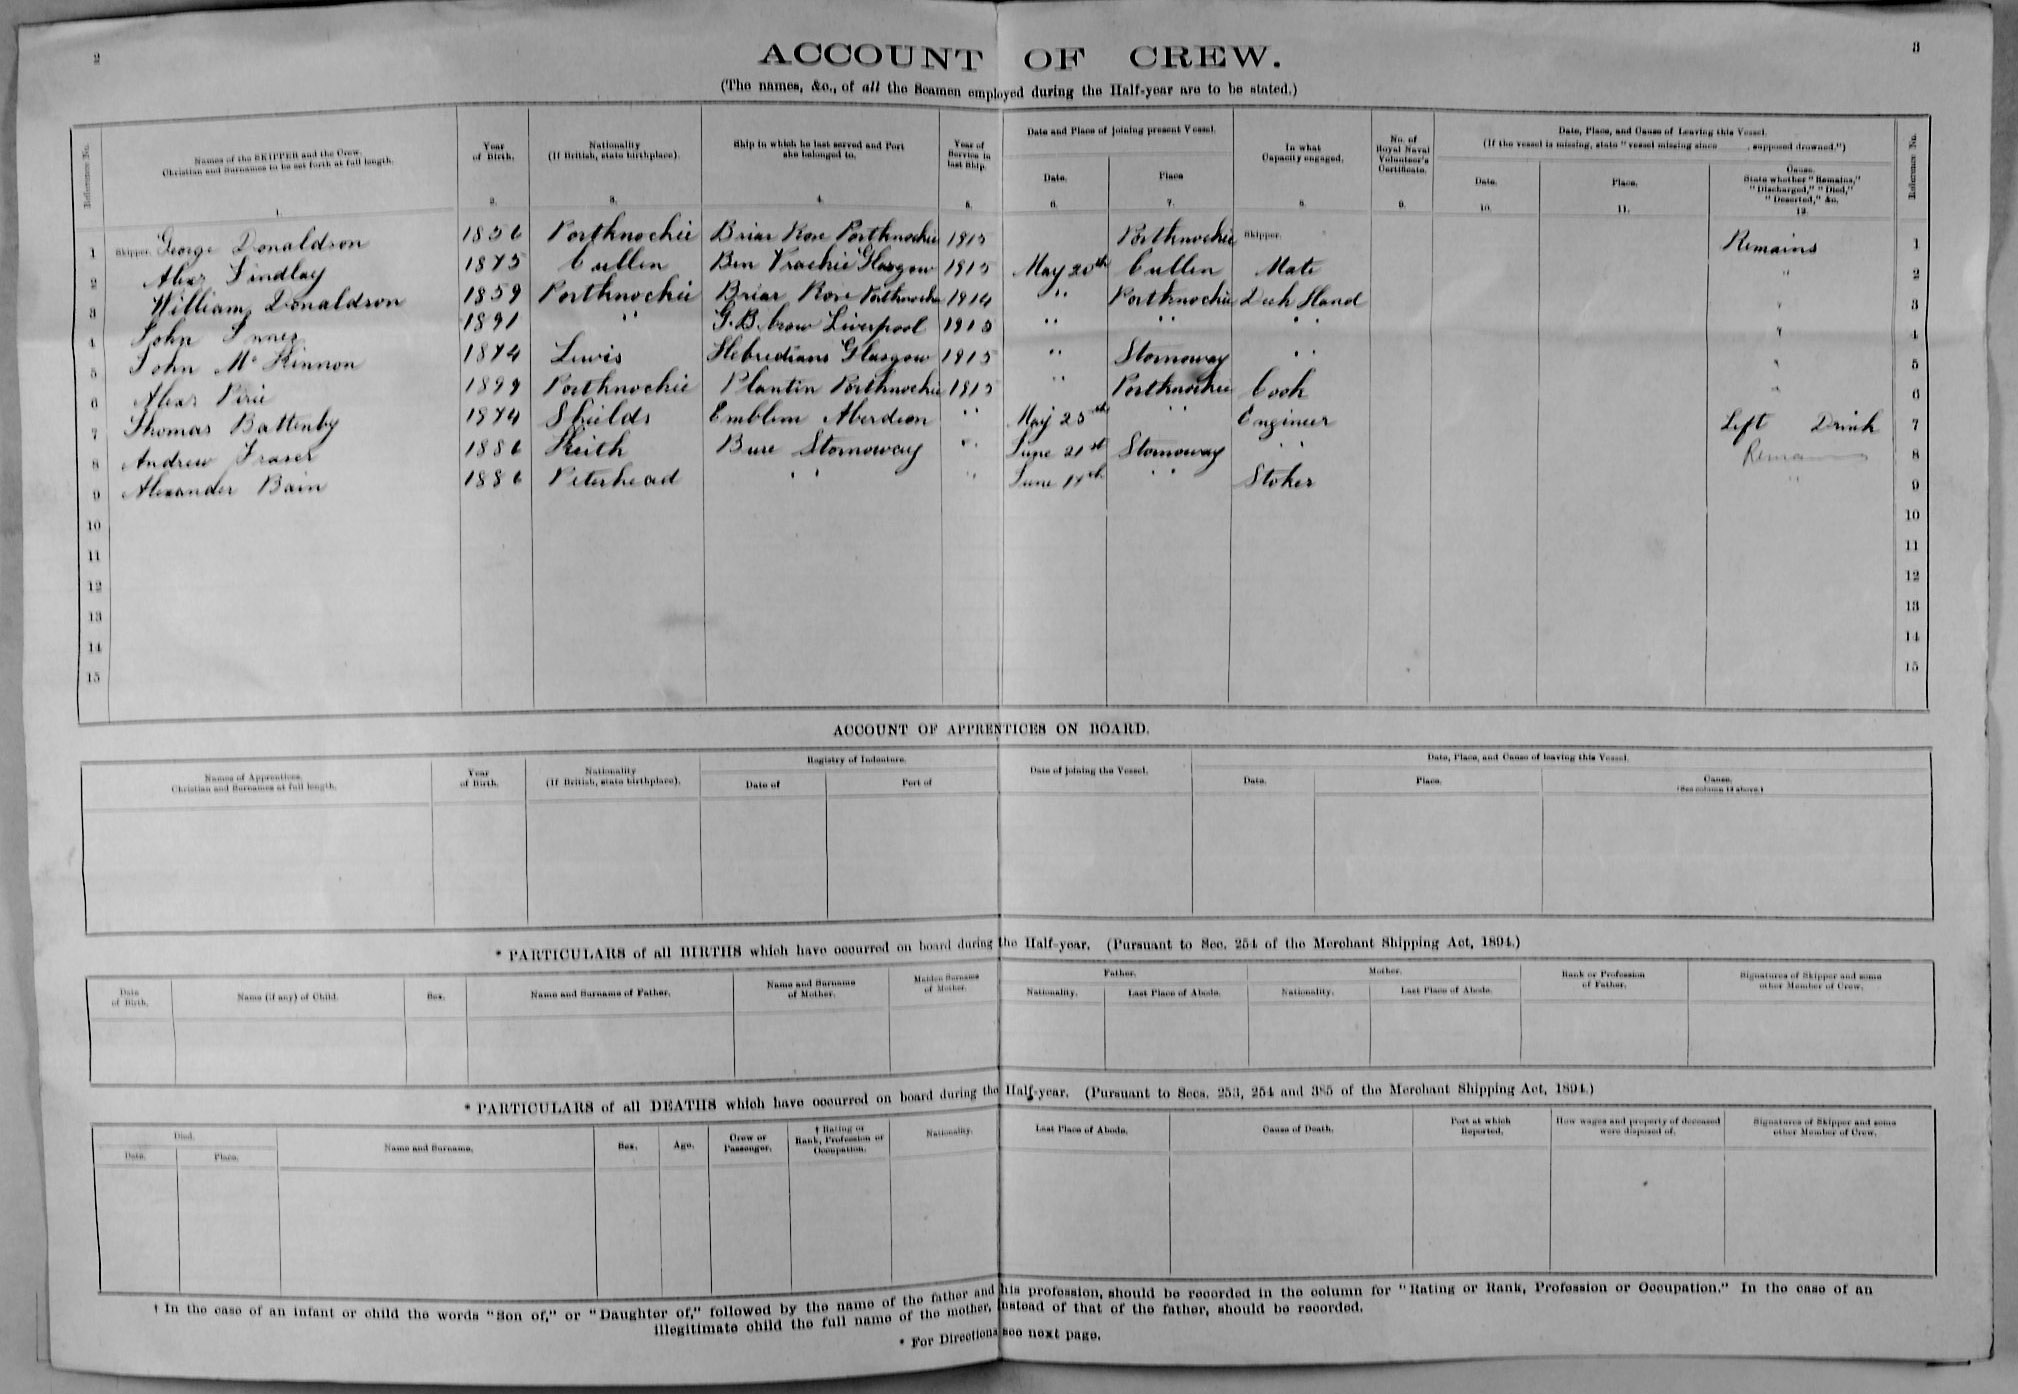 2
3
ACCOUNT OF CREW.
(The names, &c., of all the Seamen employed during the Half-year are to be stated.)
Reference No.
Names of the SKIPPER and the Crew. Christian and Surnames to be set forth at full length. 1.
Year of Birth. 2.
Nationality (If British, state birthplace). 3.
Ship in which he last served and Port she belonged to. 4.
Year of Service in last Ship. 5.
Date and Place of joining present Vessel.
Date. 6.
Place 7.
In what Capacity engaged. 8.
No. of Royal Naval Volunteer's Certificate. 9.
Date, Place, and Cause of Leaving this Vessel.
(If the vessel is missing, state "vessel missing since supposed drowned.")
Date. 10.
Place. 11.
Cause. State whether "Remains," "Discharged," "Died," "Deserted," &c. 12.
Reference No.
1 Skipper. George Donaldson 1856 Portknockie Briar Rose Portknockie 1915 Portknockie Skipper. Remains 1
2 Alexr Findlay 1875 Cullen Ben Vrackie Glasgow 1915 May 20th Cullen Mate " 2
3 William Donaldson 1859 Portknockie Briar Rose Portknockie 1914 " Portknockie Deck Hand " 3
4 John Innes 1891 " G.B. Crow Liverpool 1915 " " " " 4
5 John McKinnon 1874 Lewis Hebredians Glasgow 1915 " Stornoway " " 5
6 Alexr Pirie 1899 Portknockie Plantin Portknockie 1915 " Portknockie Cook " 6
7 Thomas Battenby 1874 Shields Emblem Aberdeen " May 25th " Engineer Left Drink 7
8 Andrew Fraser 1886 Keith Bure Stornoway " June 21st Stornoway " Remains 8
9 Alexander Bain 1886 Peterhead " " June 14th " Stoker " 9
10 10
11 11
12 12
13 13
14 14
15 15
ACCOUNT OF APPRENTICES ON BOARD.
Names of Apprentices. Christian and Surnames at full length.
Year of Birth.
Nationality (If British, state birthplace).
Registry of Indenture.
Date of
Port of
Date of joining the Vessel.
Date, Place, and Cause of leaving this Vessel.
Date.
Place.
Cause. (See column 12 above.)
* PARTICULARS of all BIRTHS which have occurred on board during the Half-year. (Pursuant to Sec. 254 of the Merchant Shipping Act, 1894.)
Date of Birth.
Name (if any) of Child.
Sex.
Name and Surname of Father.
Name and Surname of Mother.
Maiden Surname of Mother.
Father.
Nationality.
Last Place of Abode.
Mother.
Nationality.
Last Place of Abode.
Rank or Profession of Father.
Signatures of Skipper and some other Member of Crew.
* PARTICULARS of all DEATHS which have occurred on board during the Half-year. (Pursuant to Secs. 253, 254 and 385 of the Merchant Shipping Act, 1894.)
Died.
Date.
Place.
Name and Surname.
Sex.
Age.
Crew or Passenger.
† Rating or Rank, Profession or Occupation.
Nationality.
Last Place of Abode.
Cause of Death.
Port at which Reported.
How wages and property of deceased were disposed of.
Signatures of Skipper and some other Member of Crew.
† In the case of an infant or child the words "Son of," or "Daughter of," followed by the name of the father and his profession, should be recorded in the column for "Rating or Rank, Profession or Occupation." In the case of an
illegitimate child the full name of the mother, instead of that of the father, should be recorded.
* For Directions see next page.